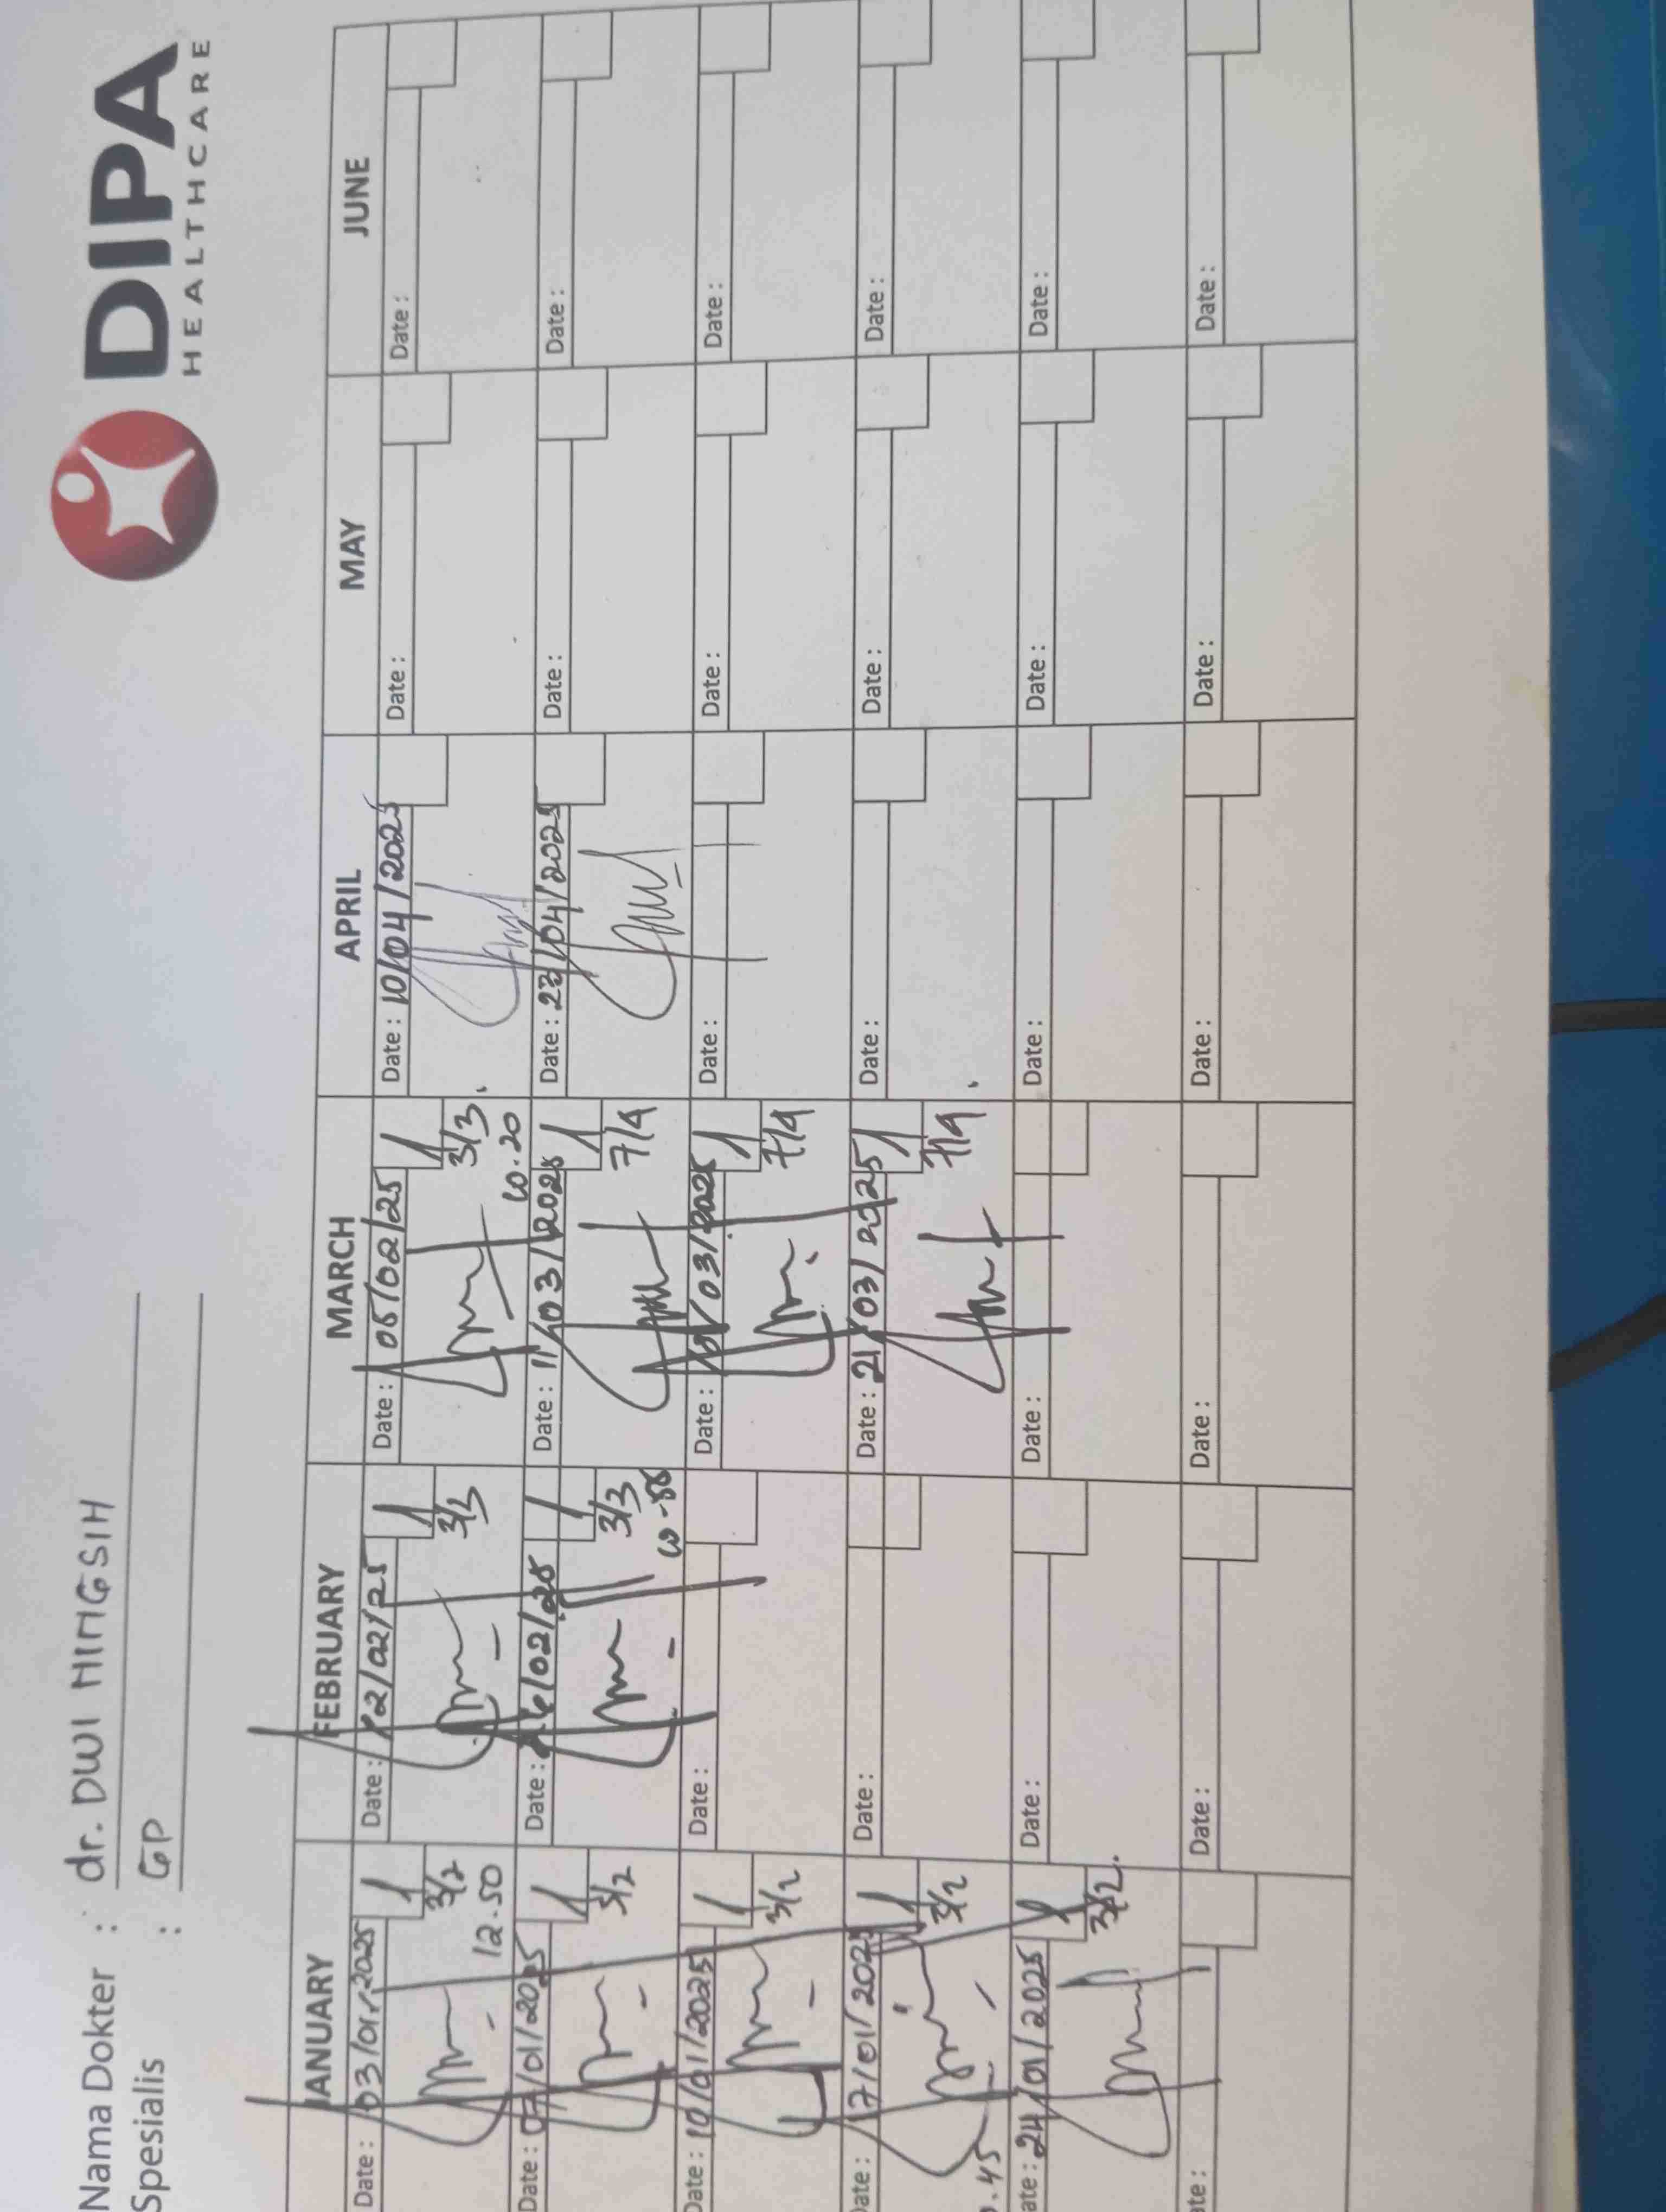 DIPA
HEALTHCARE
Nama Dokter : dr. DWI NINGSIH
Spesialis : GP
JANUARY FEBRUARY MARCH APRIL MAY JUNE
Date : 03/01/2025 Date : 12/02/25 Date : 05/02/25 Date : 10/04/2025 Date : Date :
3/2 3/3 3/3
12.50 10.20
Date : 07/01/2025 Date : 26/02/25 Date : 11/03/2025 Date : 23/04/2025 Date : Date :
3/2 3/3 7/4
Date : 10/01/2025 Date : Date : /03/2025 Date : Date : Date :
3/2 7/4
Date : 17/01/2025 Date : Date : 21/03/2025 Date : Date : Date :
3/2 7/4
.45
ate : 24/01/2025 Date : Date : Date : Date : Date :
3/2.
ate : Date : Date : Date : Date : Date :